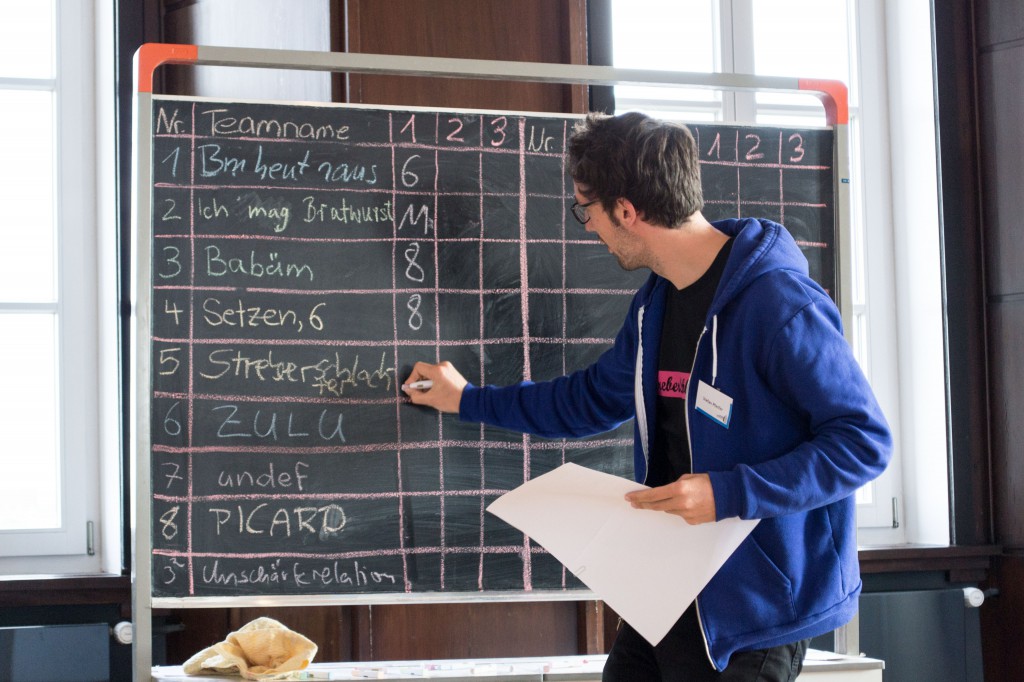 Nr. Teamname 1 2 3 Nr. 1 2 3
1 Bm heut raus 6
2 Ich mag Bratwurst 11
3 Babäm 8
4 Setzen, 6 8
5 Streberschlach
ter
6 ZULU
7 undef
8 PICARD
3² Unschärferelation